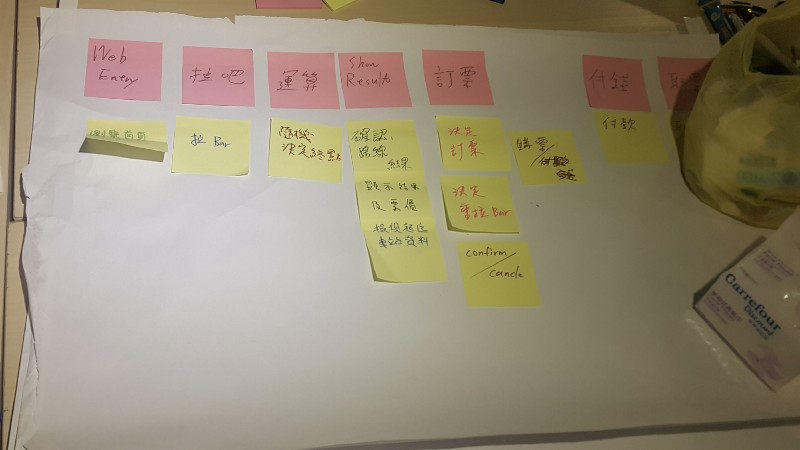 Web
Entry
拉吧
運算
Show
Result
訂票
付錢
取
瀏覽首頁
拉 Bar
隨機
決定終點
確認
路線
結果
顯示結果
及票價
車站資料
決定
訂票
決定
重拉Bar
confirm/
cancle
購票/
付款
Carrefour
Discount